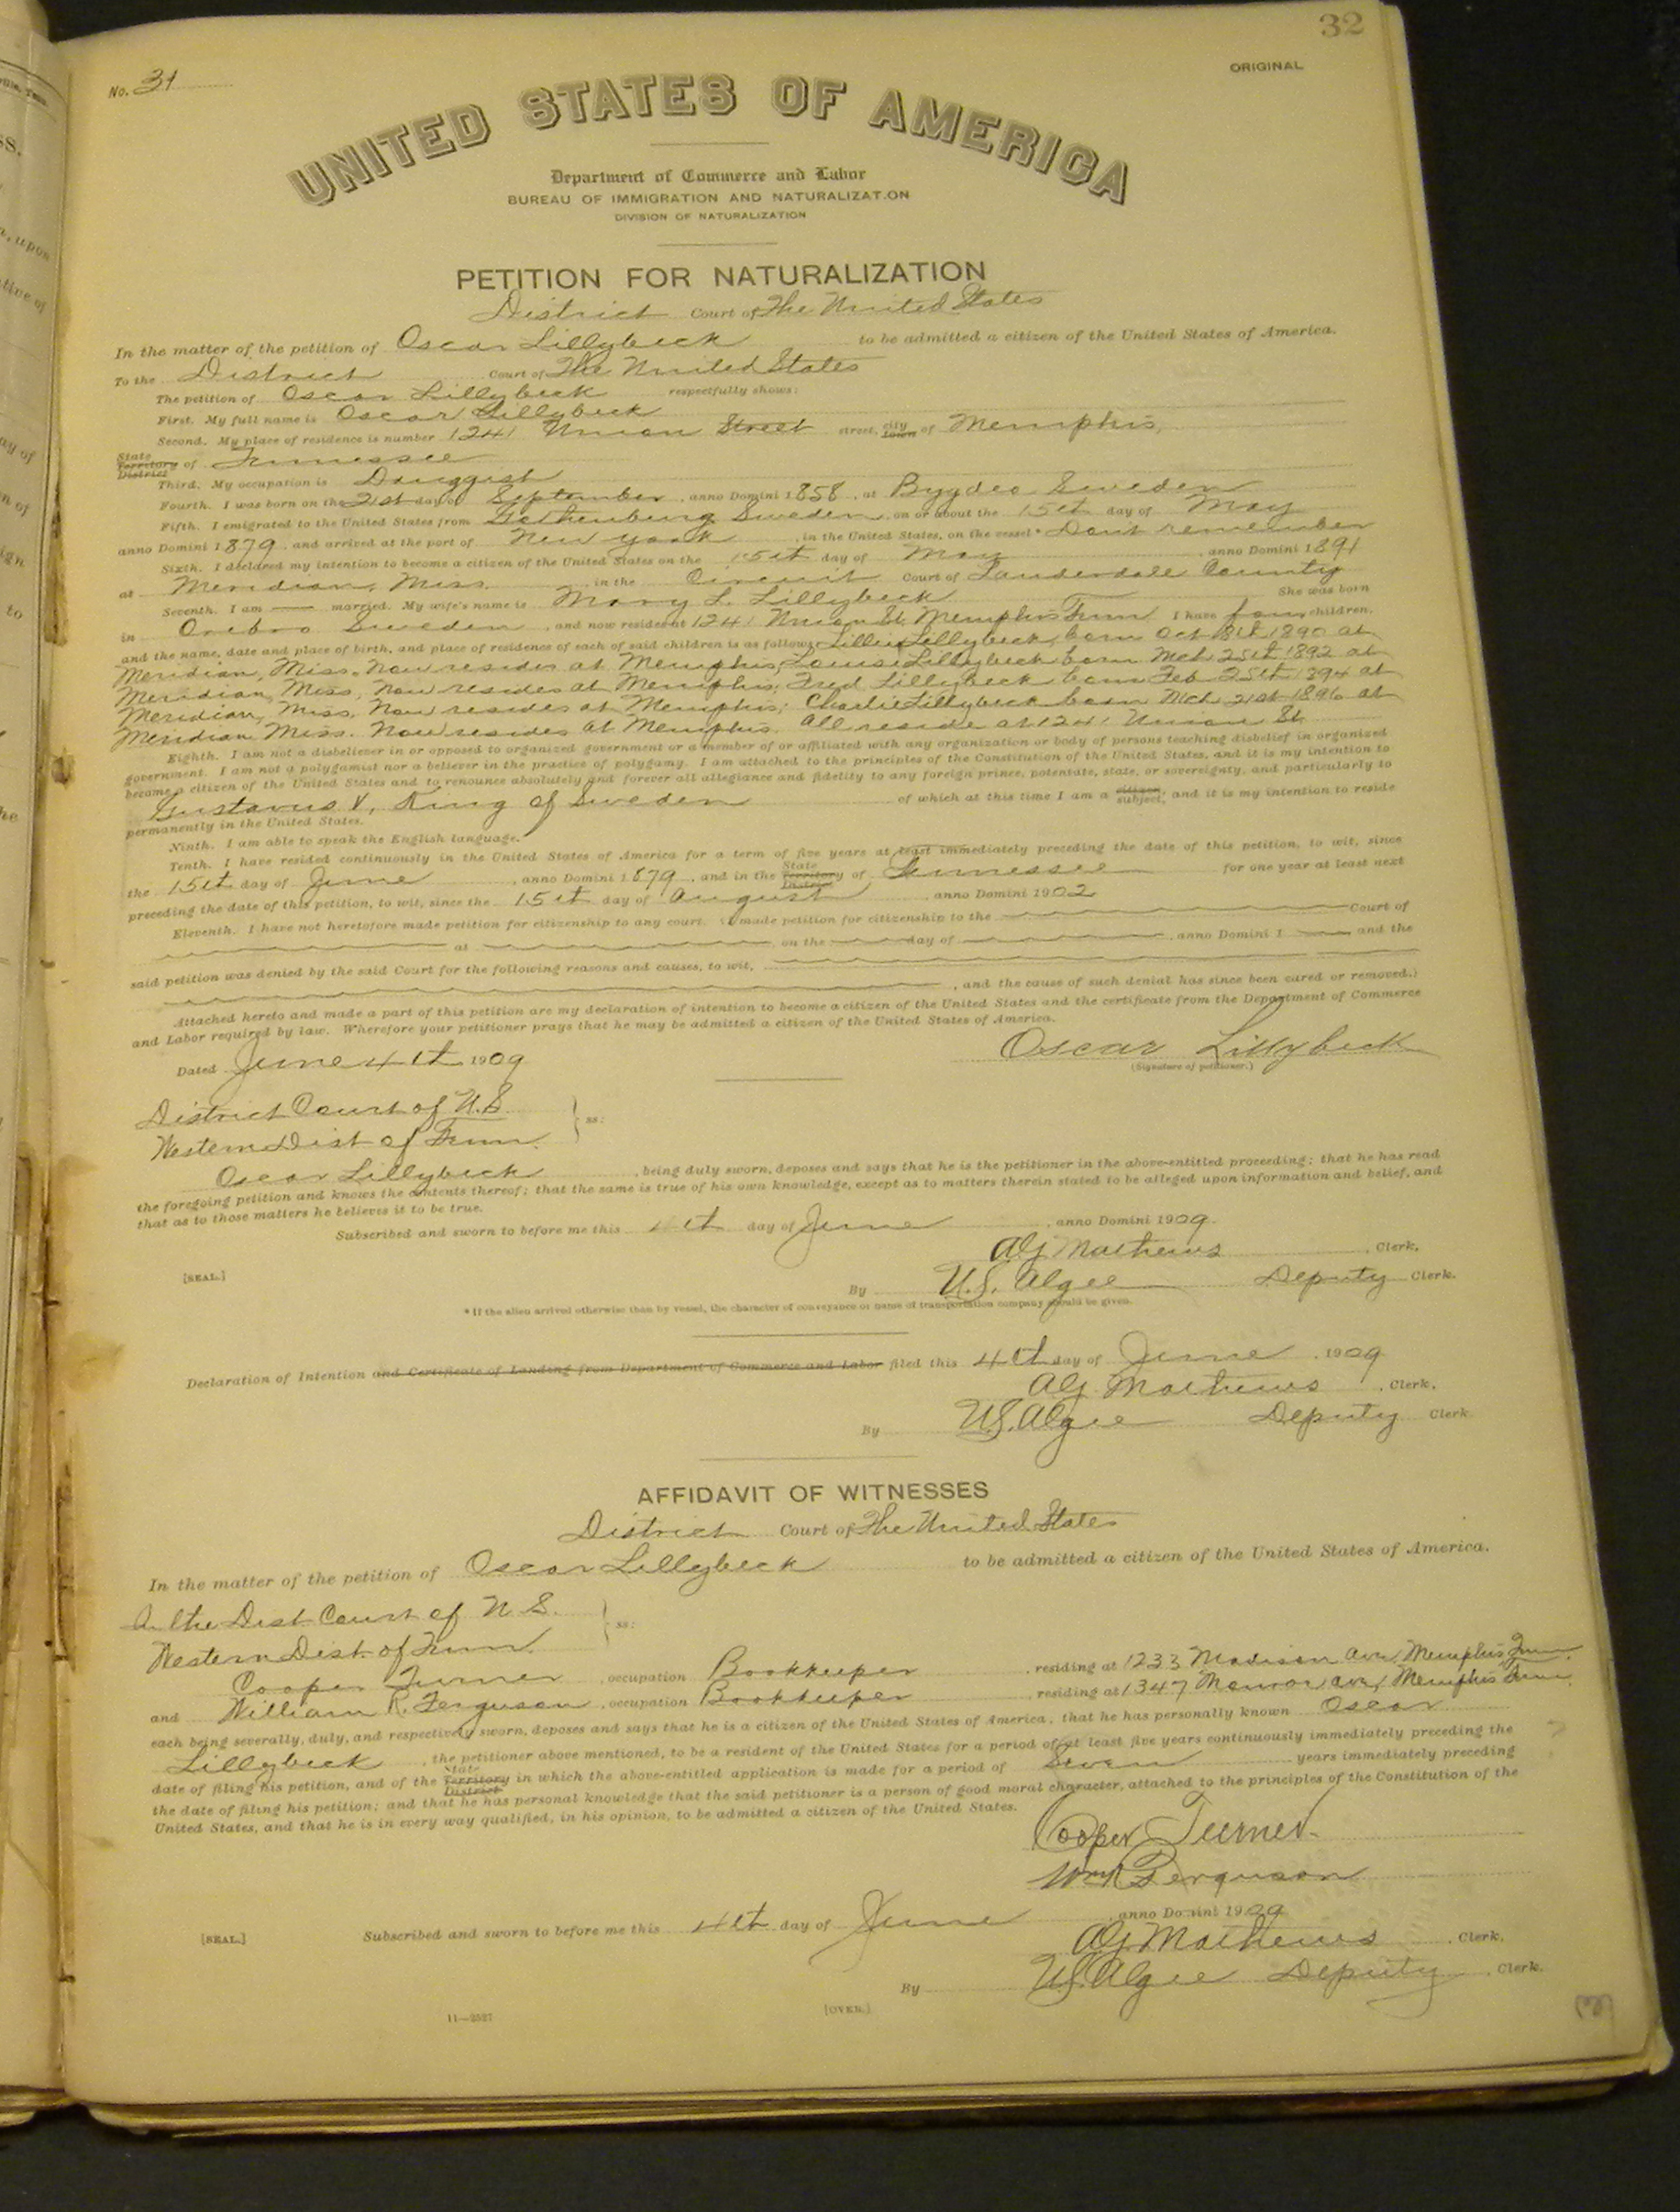 32
ORIGINAL
No. 31
UNITED STATES OF AMERICA
Department of Commerce and Labor
BUREAU OF IMMIGRATION AND NATURALIZATION
DIVISION OF NATURALIZATION
PETITION FOR NATURALIZATION
District Court of The United States
In the matter of the petition of Oscar Lillybeck to be admitted a citizen of the United States of America.
To the District Court of The United States
The petition of Oscar Lillybeck respectfully shows:
First. My full name is Oscar Lillybeck
Second. My place of residence is number 1241 Union Street street, city town of Memphis,
State Territory District of Tennessee
Third. My occupation is Druggist
Fourth. I was born on the 21st day of September, anno Domini 1858, at Bygdeo Sweden
Fifth. I emigrated to the United States from Gothenburg Sweden, on or about the 15th day of May
anno Domini 1879, and arrived at the port of New York, in the United States, on the vessel* Dont remember
Sixth. I declared my intention to become a citizen of the United States on the 15th day of May, anno Domini 1891
at Meridian, Miss. in the Circuit Court of Lauderdale County
Seventh. I am married. My wife's name is Mary L. Lillybeck She was born
in Orebro Sweden, and now resides at 1241 Union St. Memphis Tenn I have four children,
and the name, date and place of birth, and place of residence of each of said children is as follows: Lillie Lillybeck, born Oct 1890 at
Meridian, Miss. Now resides at Memphis; Louise Lillybeck born Mch 25th 1892 at
Meridian, Miss, Now resides at Memphis; Fred Lillybeck born Feb 25th 1894 at
Meridian, Miss. Now resides at Memphis; Charlie Lillybeck born Mch 21st 1896 at
Meridian Miss. Now resides at Memphis. All reside at 1241 Union St.
Eighth. I am not a disbeliever in or opposed to organized government or a member of or affiliated with any organization or body of persons teaching disbelief in organized
government. I am not a polygamist nor a believer in the practice of polygamy. I am attached to the principles of the Constitution of the United States, and it is my intention to
become a citizen of the United States and to renounce absolutely and forever all allegiance and fidelity to any foreign prince, potentate, state, or sovereignty, and particularly to
Gustavus V, King of Sweden of which at this time I am a citizen subject, and it is my intention to reside
permanently in the United States.
Ninth. I am able to speak the English language.
Tenth. I have resided continuously in the United States of America for a term of five years at least immediately preceding the date of this petition, to wit, since
the 15th day of June, anno Domini 1879, and in the State Territory District of Tennessee for one year at least next
preceding the date of this petition, to wit, since the 15th day of August, anno Domini 1902
Eleventh. I have not heretofore made petition for citizenship to any court. (I made petition for citizenship to the Court of
at, on the day of, anno Domini 1 and the
said petition was denied by the said Court for the following reasons and causes, to wit,
, and the cause of such denial has since been cured or removed.)
Attached hereto and made a part of this petition are my declaration of intention to become a citizen of the United States and the certificate from the Department of Commerce
and Labor required by law. Wherefore your petitioner prays that he may be admitted a citizen of the United States of America.
Dated June 4th 1909
Oscar Lillybeck
(Signature of petitioner.)
District Court of U.S.
Western Dist of Tenn. ss:
Oscar Lillybeck, being duly sworn, deposes and says that he is the petitioner in the above-entitled proceeding; that he has read
the foregoing petition and knows the contents thereof; that the same is true of his own knowledge, except as to matters therein stated to be alleged upon information and belief, and
that as to those matters he believes it to be true.
Subscribed and sworn to before me this 4th day of June, anno Domini 1909.
AG Mathews, Clerk.
[SEAL.]
By U.S. Algee Deputy Clerk.
* If the alien arrived otherwise than by vessel, the character of conveyance or name of transportation company should be given.
Declaration of Intention and Certificate of Landing from Department of Commerce and Labor filed this 4th day of June, 1909
AG Mathews, Clerk.
By U.S. Algee Deputy Clerk
AFFIDAVIT OF WITNESSES
District Court of The United States
In the matter of the petition of Oscar Lillybeck to be admitted a citizen of the United States of America.
In the Dist Court of U.S.
Western Dist. of Tenn. ss:
Cooper Turner, occupation Bookkeeper, residing at 1233 Madison Ave, Memphis Tenn.
and William R. Ferguson, occupation Bookkeeper, residing at 1347 Monroe ave, Memphis Tenn.
each being severally, duly, and respectively sworn, deposes and says that he is a citizen of the United States of America, that he has personally known Oscar
Lillybeck, the petitioner above mentioned, to be a resident of the United States for a period of at least five years continuously immediately preceding the
date of filing his petition, and of the State Territory District in which the above-entitled application is made for a period of Seven years immediately preceding
the date of filing his petition; and that he has personal knowledge that the said petitioner is a person of good moral character, attached to the principles of the Constitution of the
United States, and that he is in every way qualified, in his opinion, to be admitted a citizen of the United States.
Cooper Turner
Wm R Ferguson
[SEAL.]
Subscribed and sworn to before me this 4th day of June, anno Domini 1909
AG Mathews, Clerk.
By U.S. Algee Deputy, Clerk.
11—2527
[OVER.]